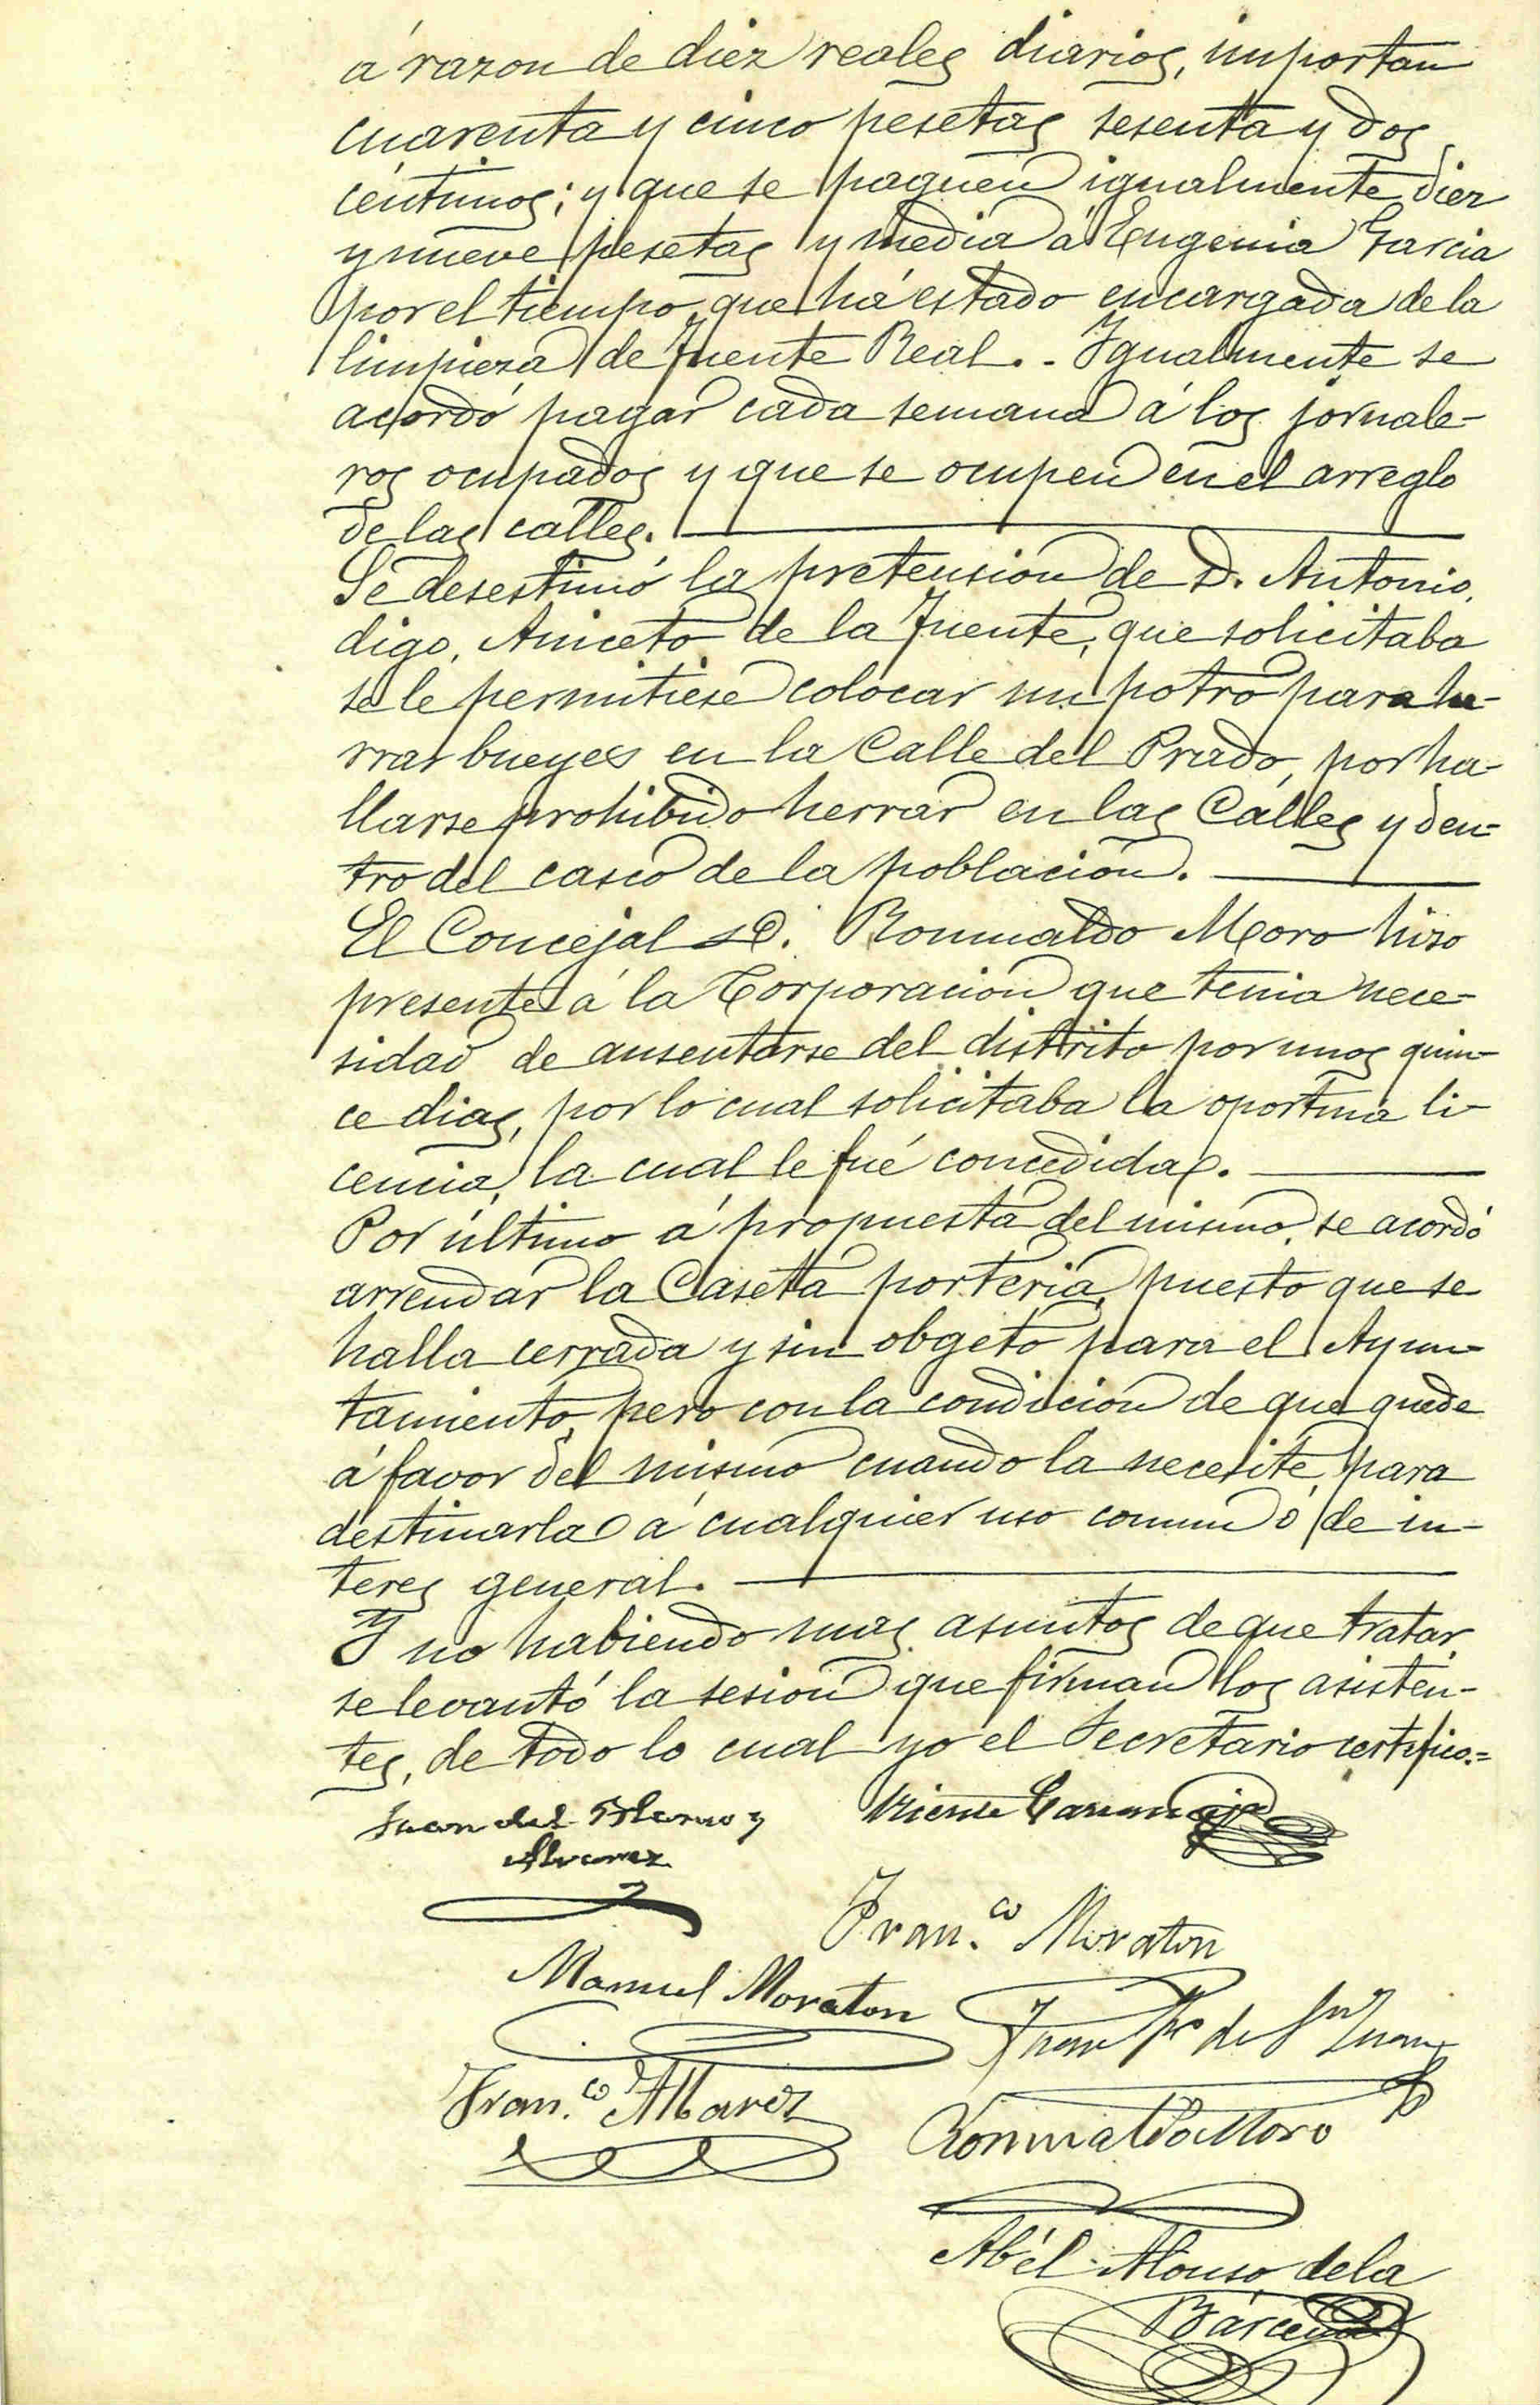 á razon de diez reales diarios, importan
cuarenta y cinco pesetas sesenta y dos
centimos; y que se paguen igualmente diez
y nueve pesetas y media á Eugenia Garcia
por el tiempo que há estado encargada de la
limpieza de Fuente Real. - Igualmente se
acordó pagar cada semana á los jornale-
ros ocupados y que se ocupen en el arreglo
de las calles.
Se desestimó la pretension de D. Antonio,
digo, Aniceto de la Fuente, que solicitaba
se le permitiese colocar un potro para he-
rrar bueyes en la Calle del Prado, por ha-
llarse prohibido herrar en las Calles y den-
tro del casco de la poblacion.
El Concejal D. Romualdo Moro hizo
presente á la Corporacion que tenia nece-
sidad de ausentarse del distrito por unos quin-
ce dias, por lo cual solicitaba la oportuna li-
cencia, la cual le fué concedida.
Por último á propuesta del mismo, se acordó
arrendar la Caseta porteria, puesto que se
halla cerrada y sin obgeto para el Ayun-
tamiento, pero con la condicion de que quede
á favor del mismo cuando la necesite, para
destinarla á cualquier uso comun ó de in-
teres general.
Y no habiendo mas asuntos de que tratar
se levantó la sesion que firman los asisten-
tes, de todo lo cual yo el Secretario certifico.=
Juan del y
Alvarez
Vicente
Fran.co Moraton
Manuel Moraton
Juan de Sn Juan
Fran.co Alvarez
Romualdo Moro
Abél Alonso de la
Bárcena